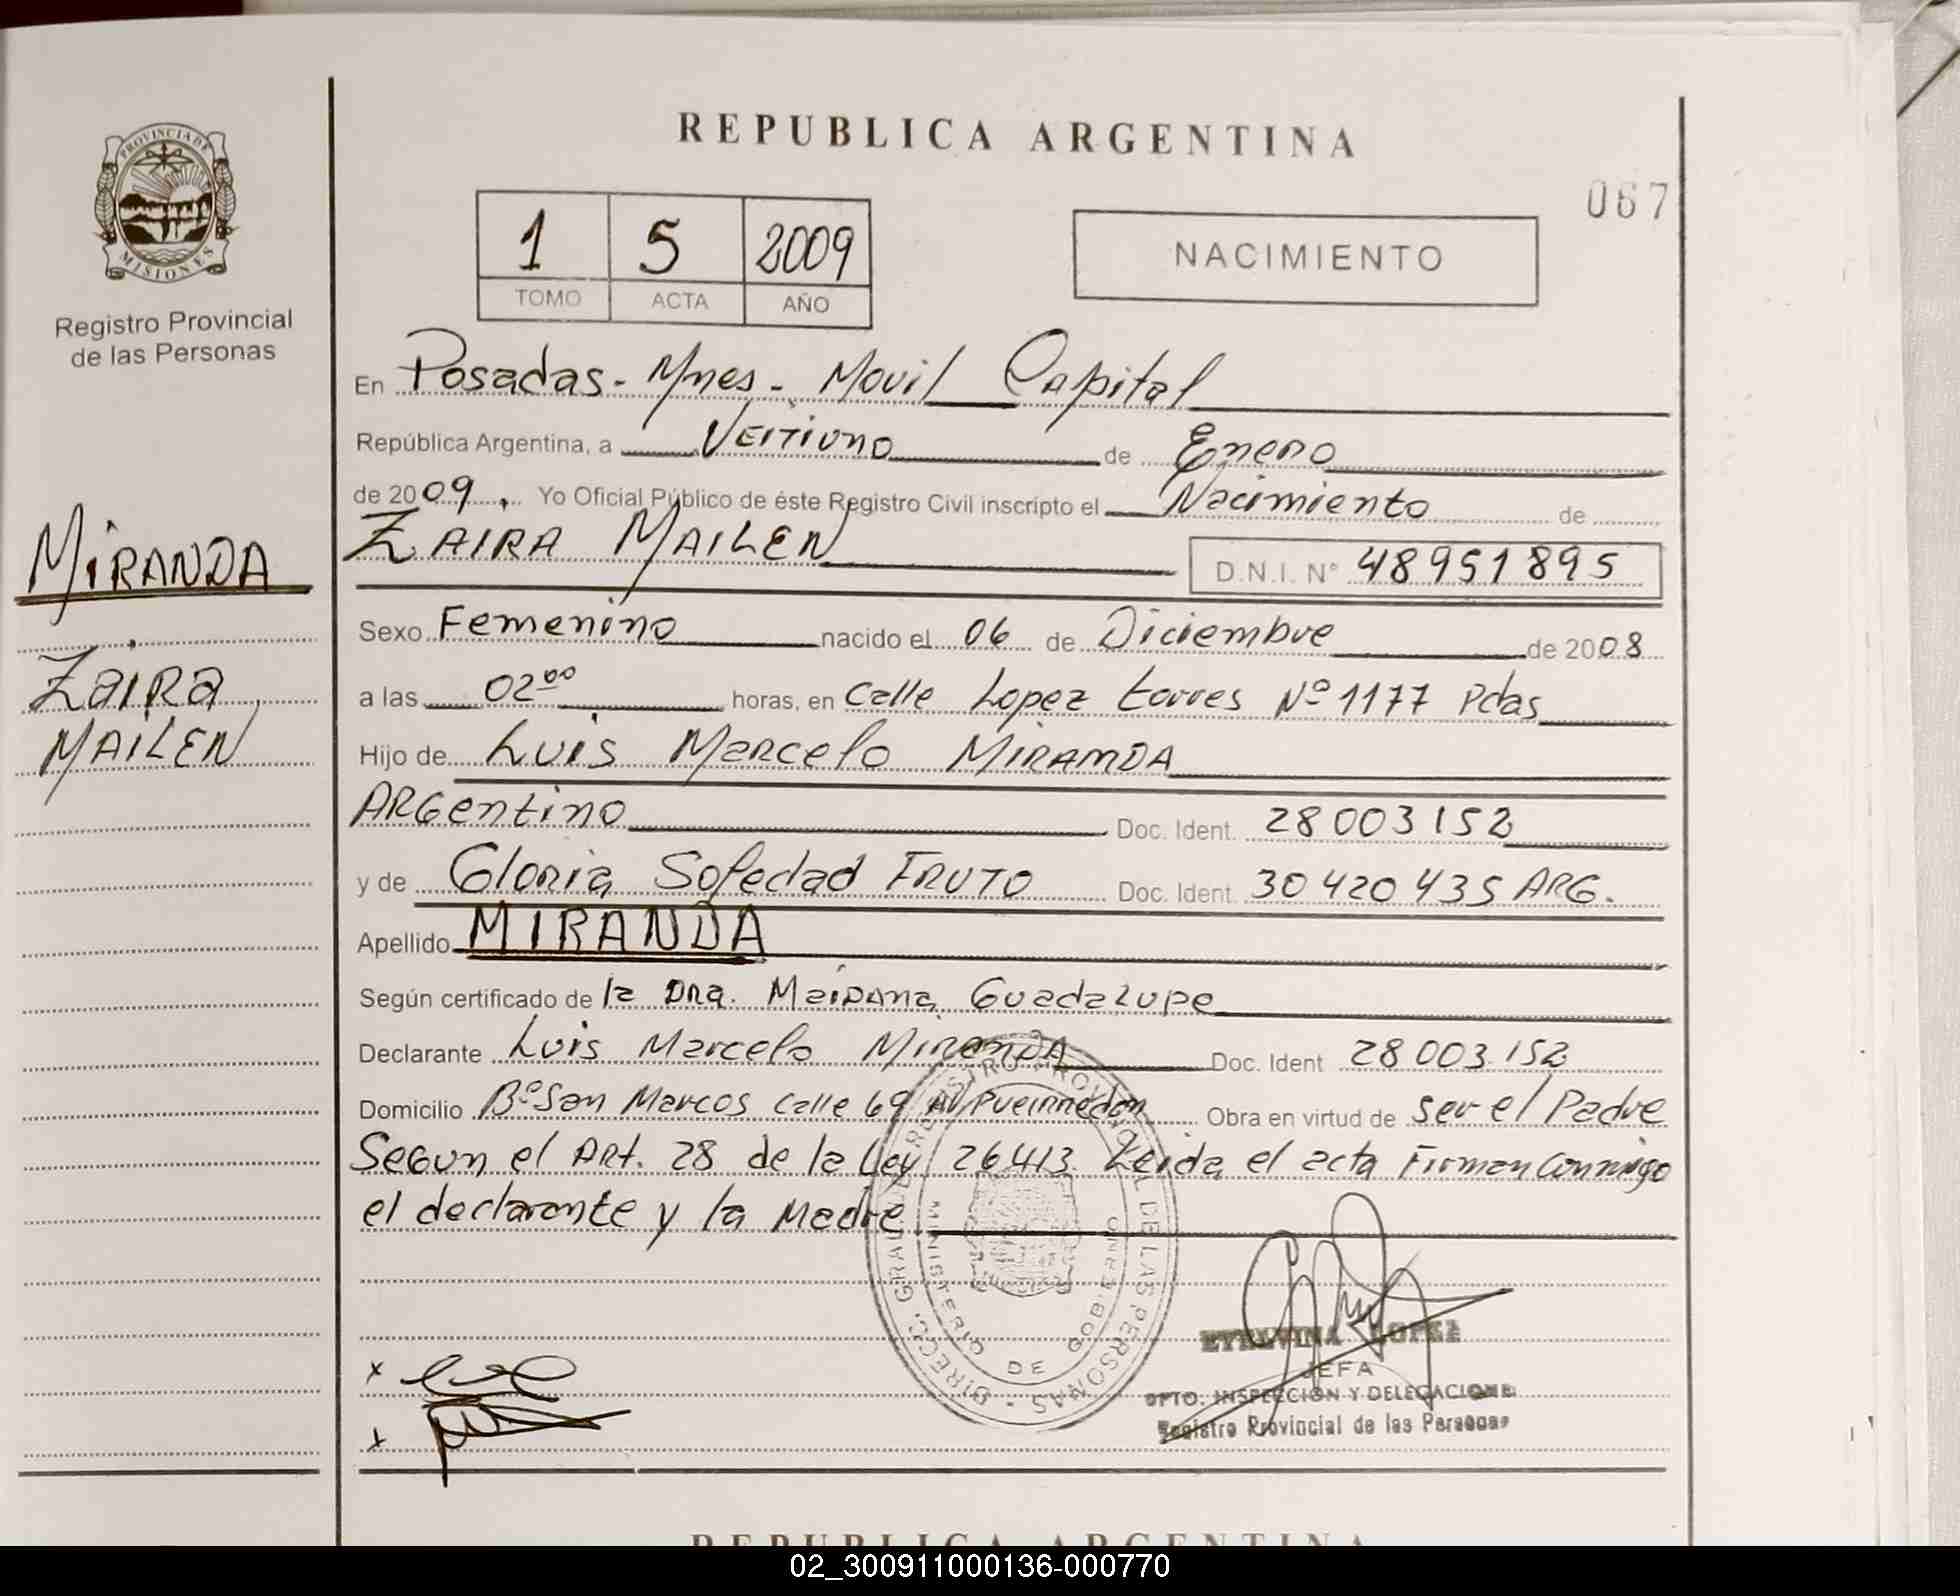 REPUBLICA ARGENTINA
067
PROVINCIA DE MISIONES
Registro Provincial
de las Personas
1 5 2009
TOMO ACTA AÑO
NACIMIENTO
En Posadas - Mnes - Movil Capital
República Argentina, a Veitiuno de Enero
de 2009. Yo Oficial Público de éste Registro Civil inscripto el Nacimiento de
ZAIRA MAILEN D.N.I. N° 48951895
MIRANDA
Zaira
MAILEN
Sexo Femenino nacido el 06 de Diciembre de 2008
a las 02⁰⁰ horas, en Calle Lopez torres Nº 1177 Pdas
Hijo de Luis Marcelo MIRANDA
ARGentino Doc. Ident. 28003152
y de Gloria Soledad FRUTO Doc. Ident. 30420435 ARG.
Apellido MIRANDA
Según certificado de la Dra. Guadalupe
Declarante Luis Marcelo MIRANDA Doc. Ident 28003152
Domicilio Bº San Marcos calle 69 AV Pueirredon Obra en virtud de ser el Padre
Segun el Art. 28 de la Ley 26413 Leida el acta Firman Conmigo
el declarante y la Madre
DIRECC. GRAL. DE REGISTRO PROVINCIAL DE LAS PERSONAS
MINISTERIO DE GOBIERNO
LOPEZ
JEFA
DPTO. INSPECCION Y DELEGACIONES
Registro Provincial de las Personas
x
x
REPUBLICA ARGENTINA
02_300911000136-000770